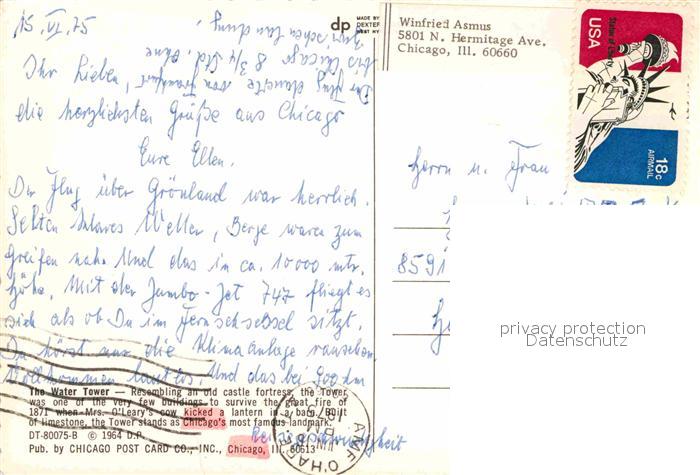 15. VI. 75
Ihr Lieben,
die herzlichsten Grüße aus Chicago
Eure Ellen.
Der Flug über Grönland war herrlich.
Selten klares Wetter, Berge waren zum
Greifen nahe. Und das in ca. 10 000 mtr.
Höhe. Mit der Jumbo-Jet 747 fliegt es
sich als ob Du im Fernsehsessel sitzt.
Du hörst nur die Klimaanlage rauschen
Vollkommen lautlos. Und das bei 900 km
Reisegeschwindigkeit
Der Flug dauerte von Frankfurt
bis Chicago 8 3/4 Std. ohne
Zwischenlandung.
dp MADE BY
DEXTER
WEST NY
Winfried Asmus
5801 N. Hermitage Ave.
Chicago, Ill. 60660
USA
Statue of Liberty
18c
AIRMAIL
Herrn u. Frau
8591
privacy protection
Datenschutz
The Water Tower — Resembling an old castle fortress, the Tower
was one of the very few buildings to survive the great fire of
1871 when Mrs. O'Leary's cow kicked a lantern in a barn. Built
of limestone, the Tower stands as Chicago's most famous landmark.
DT-80075-B © 1964 D.P.
Pub. by CHICAGO POST CARD CO., INC., Chicago, Ill. 60613
AMF O'HARE